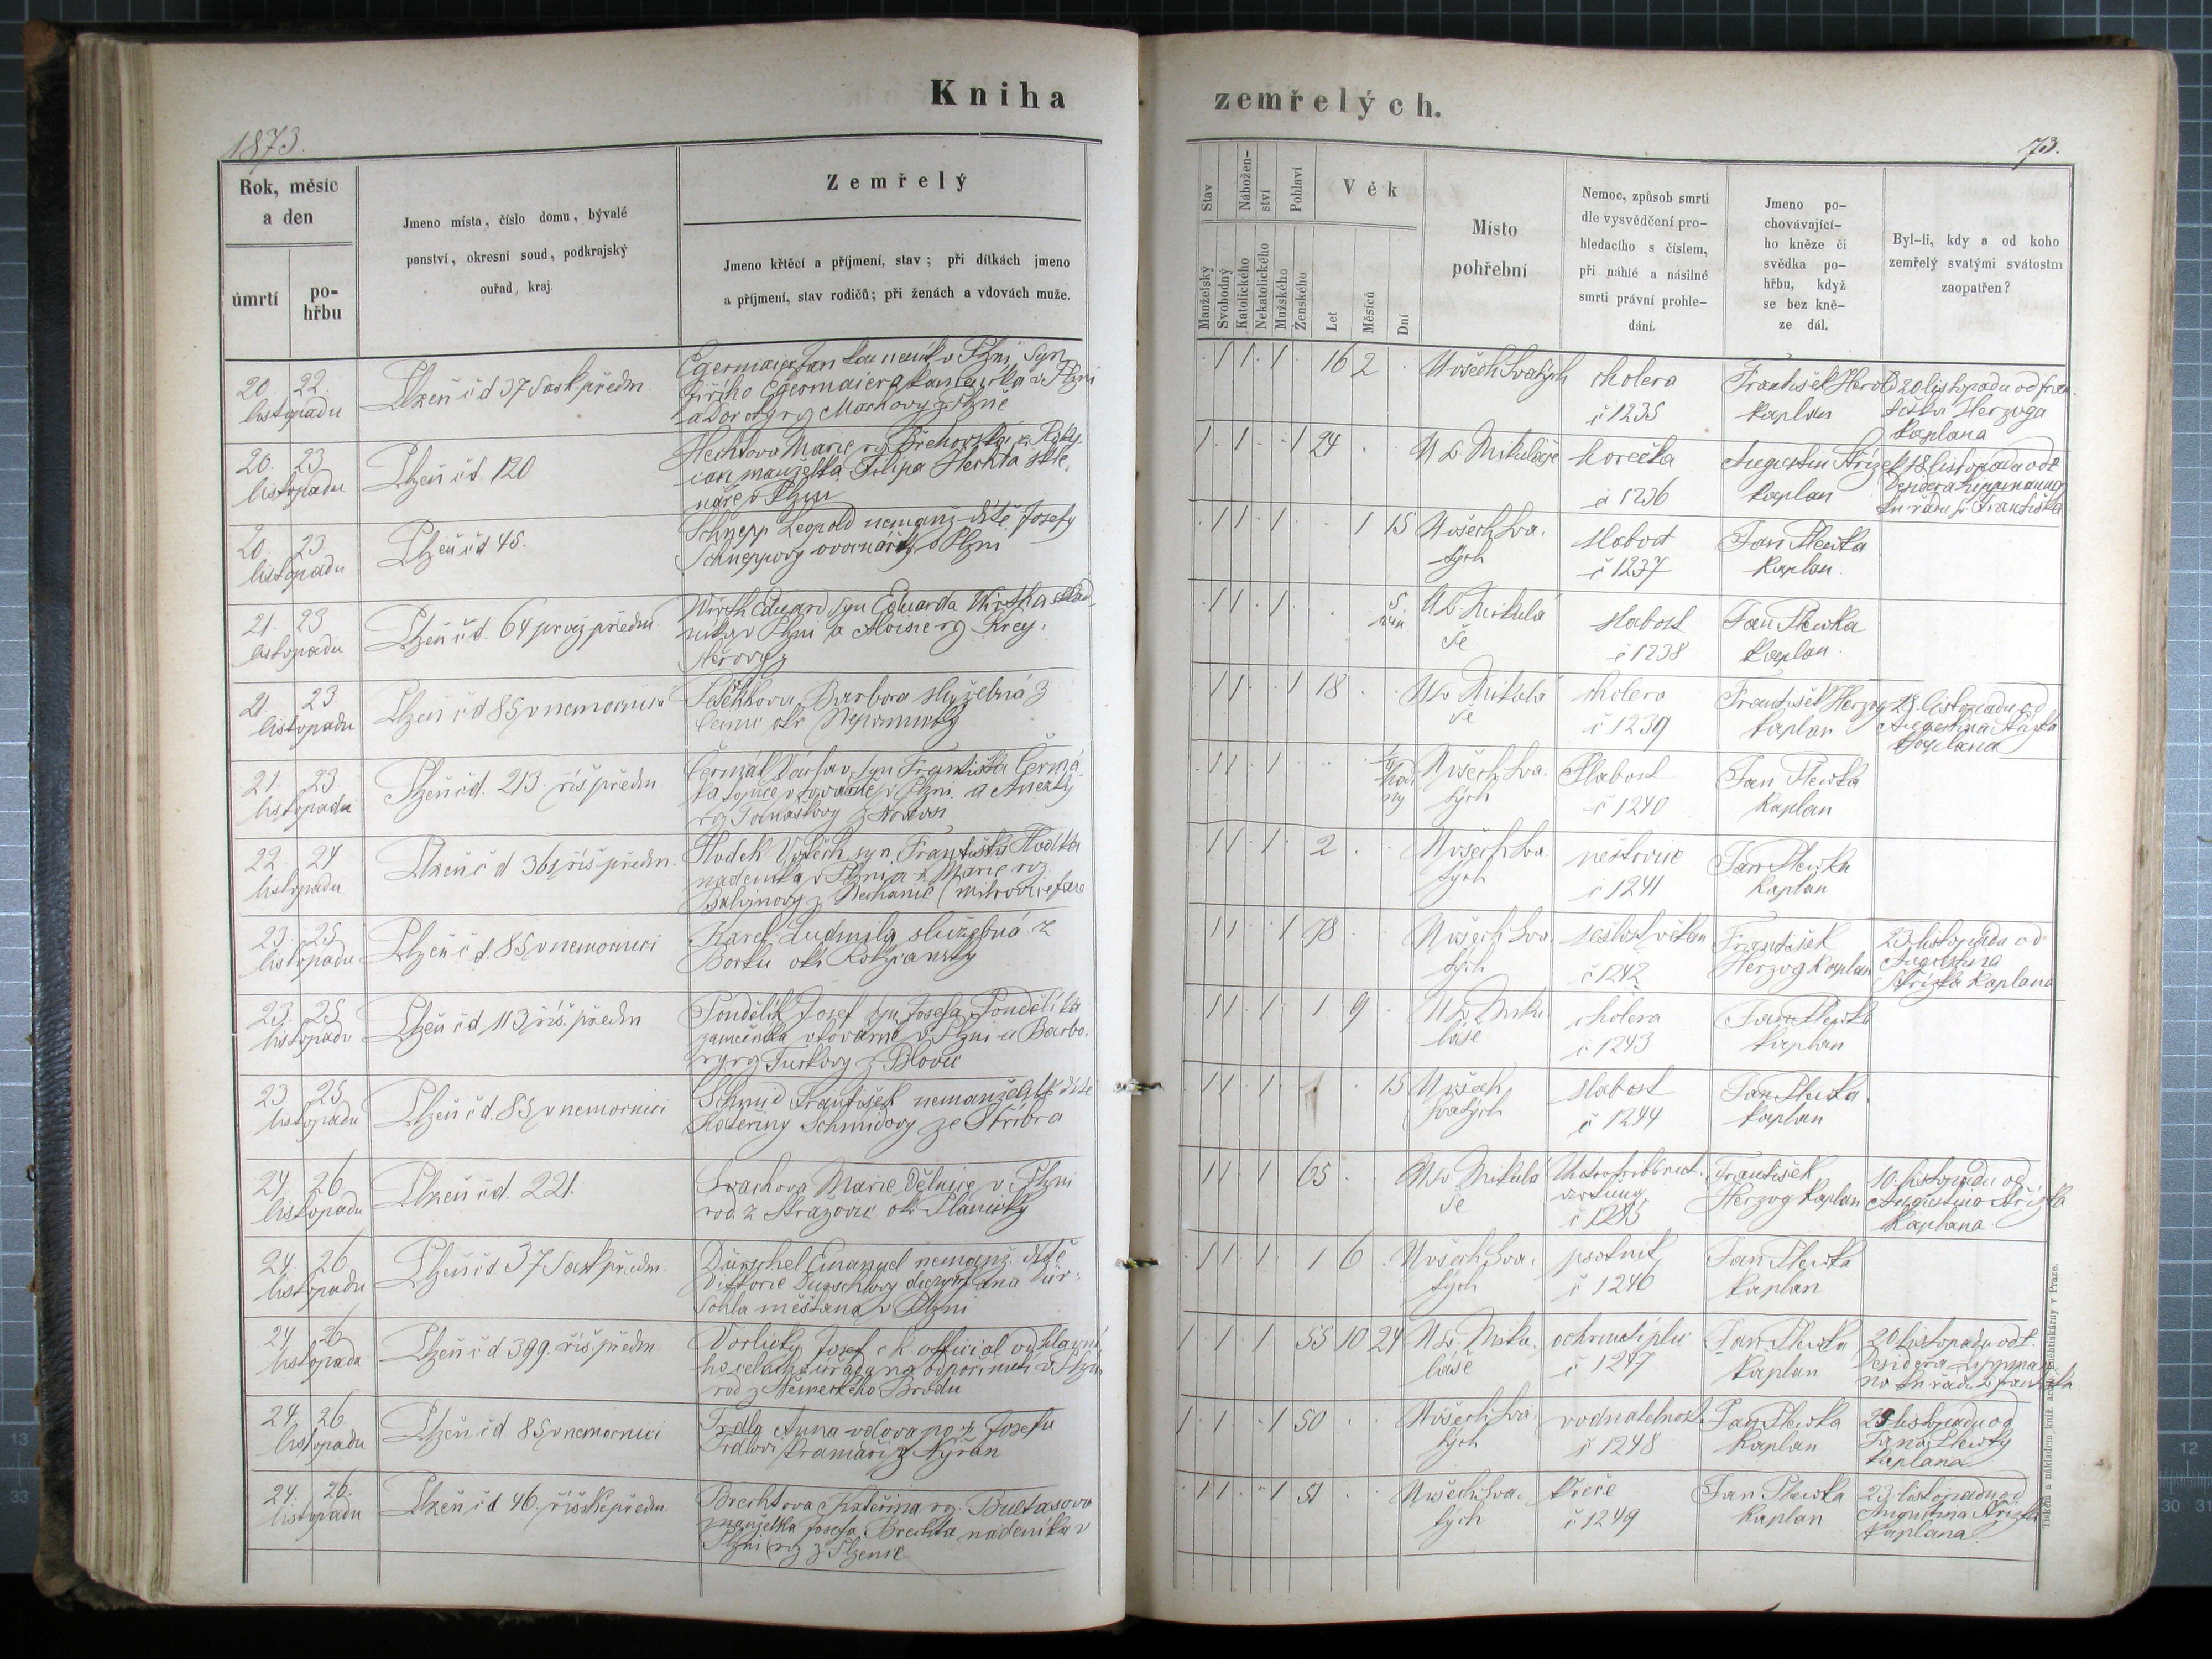 Kniha
zemřelých.
1873.
73.
Rok, měsíc
a den
úmrtí
po-
hřbu
Jmeno místa, číslo domu, bývalé
panství, okresní soud, podkrajský
ouřad, kraj.
Zemřelý
Jmeno křtěcí a příjmení, stav; při dítkách jmeno
a příjmení, stav rodičů; při ženách a vdovách muže.
Stav
Manželský
Svobodný
Nábožen-
ství
Katolického
Nekatolického
Pohlaví
Mužského
Ženského
Věk
Let
Měsíců
Dní
Místo
pohřební
Nemoc, způsob smrti
dle vysvědčení pro-
hledacího s číslem,
při náhlé a násilné
smrti právní prohle-
dání.
Jmeno po-
chovávající-
ho kněze či
svědka po-
hřbu, když
se bez kně-
ze dál.
Byl-li, kdy a od koho
zemřelý svatými svátostmi
zaopatřen?
20. 22.
listopadu
Plzeň čd 37 Sask. předm.
Egermaier Jan kameník v Plzni, syn
Jiřího Egermaiera kameníka v Plzni
a Doroty rz Machovy z Plzně
1 1 1 16 2
U všech Svatých
cholera
č 1235
František Herold
kaplan
20 listopadu od Fran
tiška Herzoga
kaplana
20. 23
listopadu
Plzeň čd. 120
Hechtova Marie rz Břehovska z Roky-
can manželka Filipa Hechta skle-
náře v Plzni
1 1 1 24
U sv. Mikuláše
horečka
č 1236
Augustin Střízek
kaplan
18 listopadu od P.
Desidera Lippmanna
kn. řádu sv. Františka
20. 23
listopadu
Plzeň čd 45.
Schnepp Leopold nemanž. dítě Josefy
Schneppovy ovocnářky v Plzni
1 1 1 1 15
U všech Sva-
tých
slabost
č 1237
Jan Slewka
kaplan.
21. 23
listopadu
Plzeň čd. 64 praž. předm.
Wirth Eduard syn Eduarda Wirtha slad-
níka v Plzni a Aloisie rz Krey-
1 1 1 5
U sv. Mikulá
še
slabost
č 1238
Jan Slewka
kaplan.
21. 23
listopadu
Plzeň čd 85 v nemocnici
Barbora služebná z
okr Nepomucký
1 1 1 18
U sv Mikulá
še
cholera
č 1239
František Herzog
kaplan
21. listopadu od
Augustina Střízka
kaplana
21. 23
listopadu
Plzeň čd. 213 říš. předm.
Čermák Václav, syn Františka Čermá-
ka topiče v továrně v Plzni a Anežky
rz Tomáškovy z
1 1 1
U všech Sva-
tých
Slabost
č 1240
Jan Slewka
kaplan
22. 24
listopadu
Plzeň čd 361 říš předm.
Hodek Vojtěch syn Františka Hodka
nadeníka v Plzni a Marie rz
z Nechanic
1 1 1 2
U všech Sva
tých
neštovice
č 1241
Jan Slewka
kaplan
23. 25
listopadu
Plzeň čd. 85 v nemocnici
Karel Ludmila služebná z
Borku okr Rokycanský
U všech Sva
tých
sešlost věkem
č 1242
František
Herzog kaplan
23. listopadu od
Augustina
Střízka kaplana
23. 25
listopadu
Plzeň čd 113 říš. předm
Pondělík Josef syn Josefa Pondělíka
zámečníka v továrně v Plzni a Barbo-
ry rz Turkovy z Blovic
1 1 1 1 9
U sv. Miku-
láše
cholera
č 1243
Jan Slewka
kaplan
23. 25
listopadu
Plzeň čd. 85 v nemocnici
Schmid František nemanželské dítě
Kateřiny Schmidovy ze Stříbra
1 1 1 15
U všech
Svatých
slabost
č 1244
Jan Slewka
kaplan
24. 26
listopadu
Plzeň čd. 221.
Marie dělnice v Plzni
rod. z Strážovic okr Plánický
1 1 1 65
U sv Mikulá
še
č 1245
František
Herzog kaplan
10. listopadu od
Augustina Střízka
kaplana.
24. 26
listopadu
Plzeň čd. 37 Sask předm.
Dürschel Emanuel nemanž. dítě
Viktorie Durschlovy dcery Jana Dür-
šchla měšťana v Plzni
1 1 1 1 6
U všech Sva-
tých
psotník
č 1246
Jan Slewka
kaplan
24. 26
listopadu
Plzeň čd 399. říš předm.
Vorlický Josef ck official od hlavní-
ho celního úřadu na odpočinutí v Plzni
rod z Německého Brodu
1 1 1 55 10 24
U sv. Miku-
láše
ochrnutí plic
č 1247
Jan Slewka
kaplan
20 listopadu od P.
Desidera Lippman
na kn. řádu sv Františka
24. 26
listopadu
Plzeň čd 85 v nemocnici
Trdla Anna vdova po Josefu
Trdlovi kramáři z Nýřan
1 1 1 50
U všech Sva-
tých
vodnatelnost
č 1248
Jan Slewka
kaplan
listopadu od
Jana Slewky
kaplana
24. 26.
listopadu
Plzeň čd 46. říšské předm.
Brechtova Kateřina rz. Bultasova
manželka Josefa Brechta nadeníka v
Plzni rz z Plzenic
1 1 1 51
U všech Sva-
tých
křeče
č 1249
Jan Slewka
kaplan
23. listopadu od
Augustina Střízka
kaplana